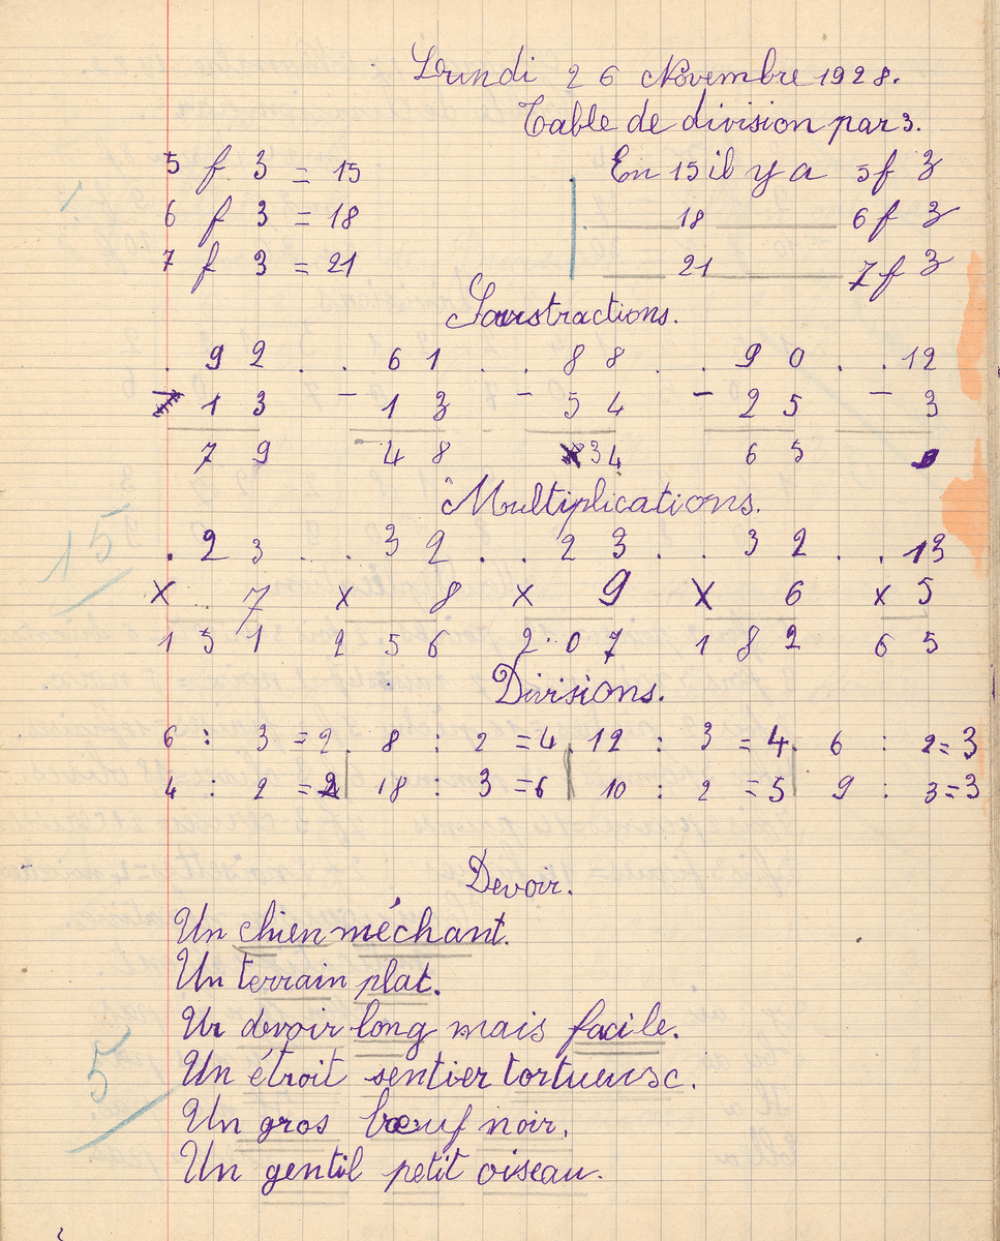 Lundi 26 Novembre 1928.
Table de division par 3.
5 f 3 = 15 En 15 il y a 5 f 3
6 f 3 = 18 18 6 f 3
7 f 3 = 21 21 7 f 3
Soustractions.
. 92 . . 61 . . 88 . . 90 . . 12
13 - 13 - 54 - 25 - 3
79 48 34 65 9
Multiplications.
. 23 . . 32 . . 23 . . 32 . . 13
x 7 x 8 x 9 x 6 x 5
151 256 2.07 182 65
15
Divisions.
6 : 3 = 2 8 : 2 = 4 12 : 3 = 4 6 : 2 = 3
4 : 2 = 2 18 : 3 = 6 10 : 2 = 5 9 : 3 = 3
Devoir.
Un chien méchant.
Un terrain plat.
Un devoir long mais facile.
Un étroit sentier tortueuse.
5
Un gros bœuf noir.
Un gentil petit oiseau.